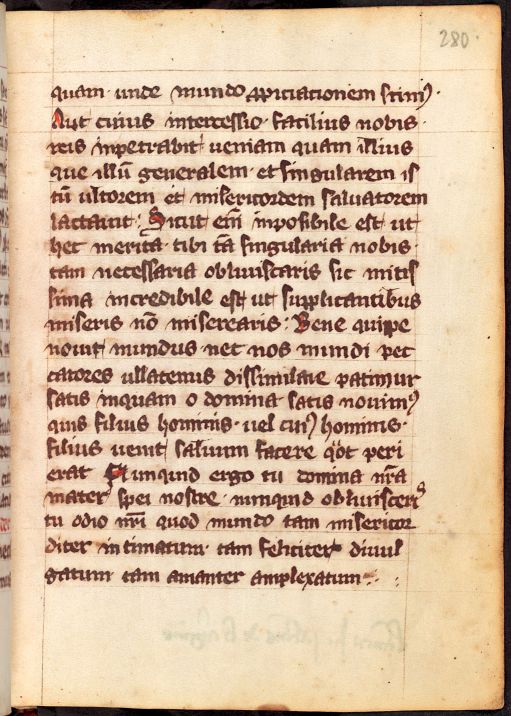 280.
quam · unde mundo ꝓpiciationem scim⁹.
Aut cuius intercessio · facilius nobis ·
reis inpetrabit ueniam quam illius
que illū generalem · et singularem is
tū ultorem et misericordem saluatorem
lactauit · Sicut em̄ inposibile est ut
hec merita tibi tā singularia nobis ·
tam necessaria obliuiscaris sic mitis
sima incredibile est ut supplicantibus
miseris nō miserearis · Bene quippe
nouit mundus nec nos mundi pec
catores ullatenus dissimilare patimur
satis inquam o domina satis nouim⁹
quis filius hominis · uel cui⁹ hominis ·
filius uenit saluum facere q̄ȯt peri
erat Nunquid ergo tu domina nr̄a
mater spei nostre · nunquid obliuisceris
tu odio nr̄i quod mundo tam misericor
diter intimatum · tam feliciter diuul
gatum tam amanter amplexatum